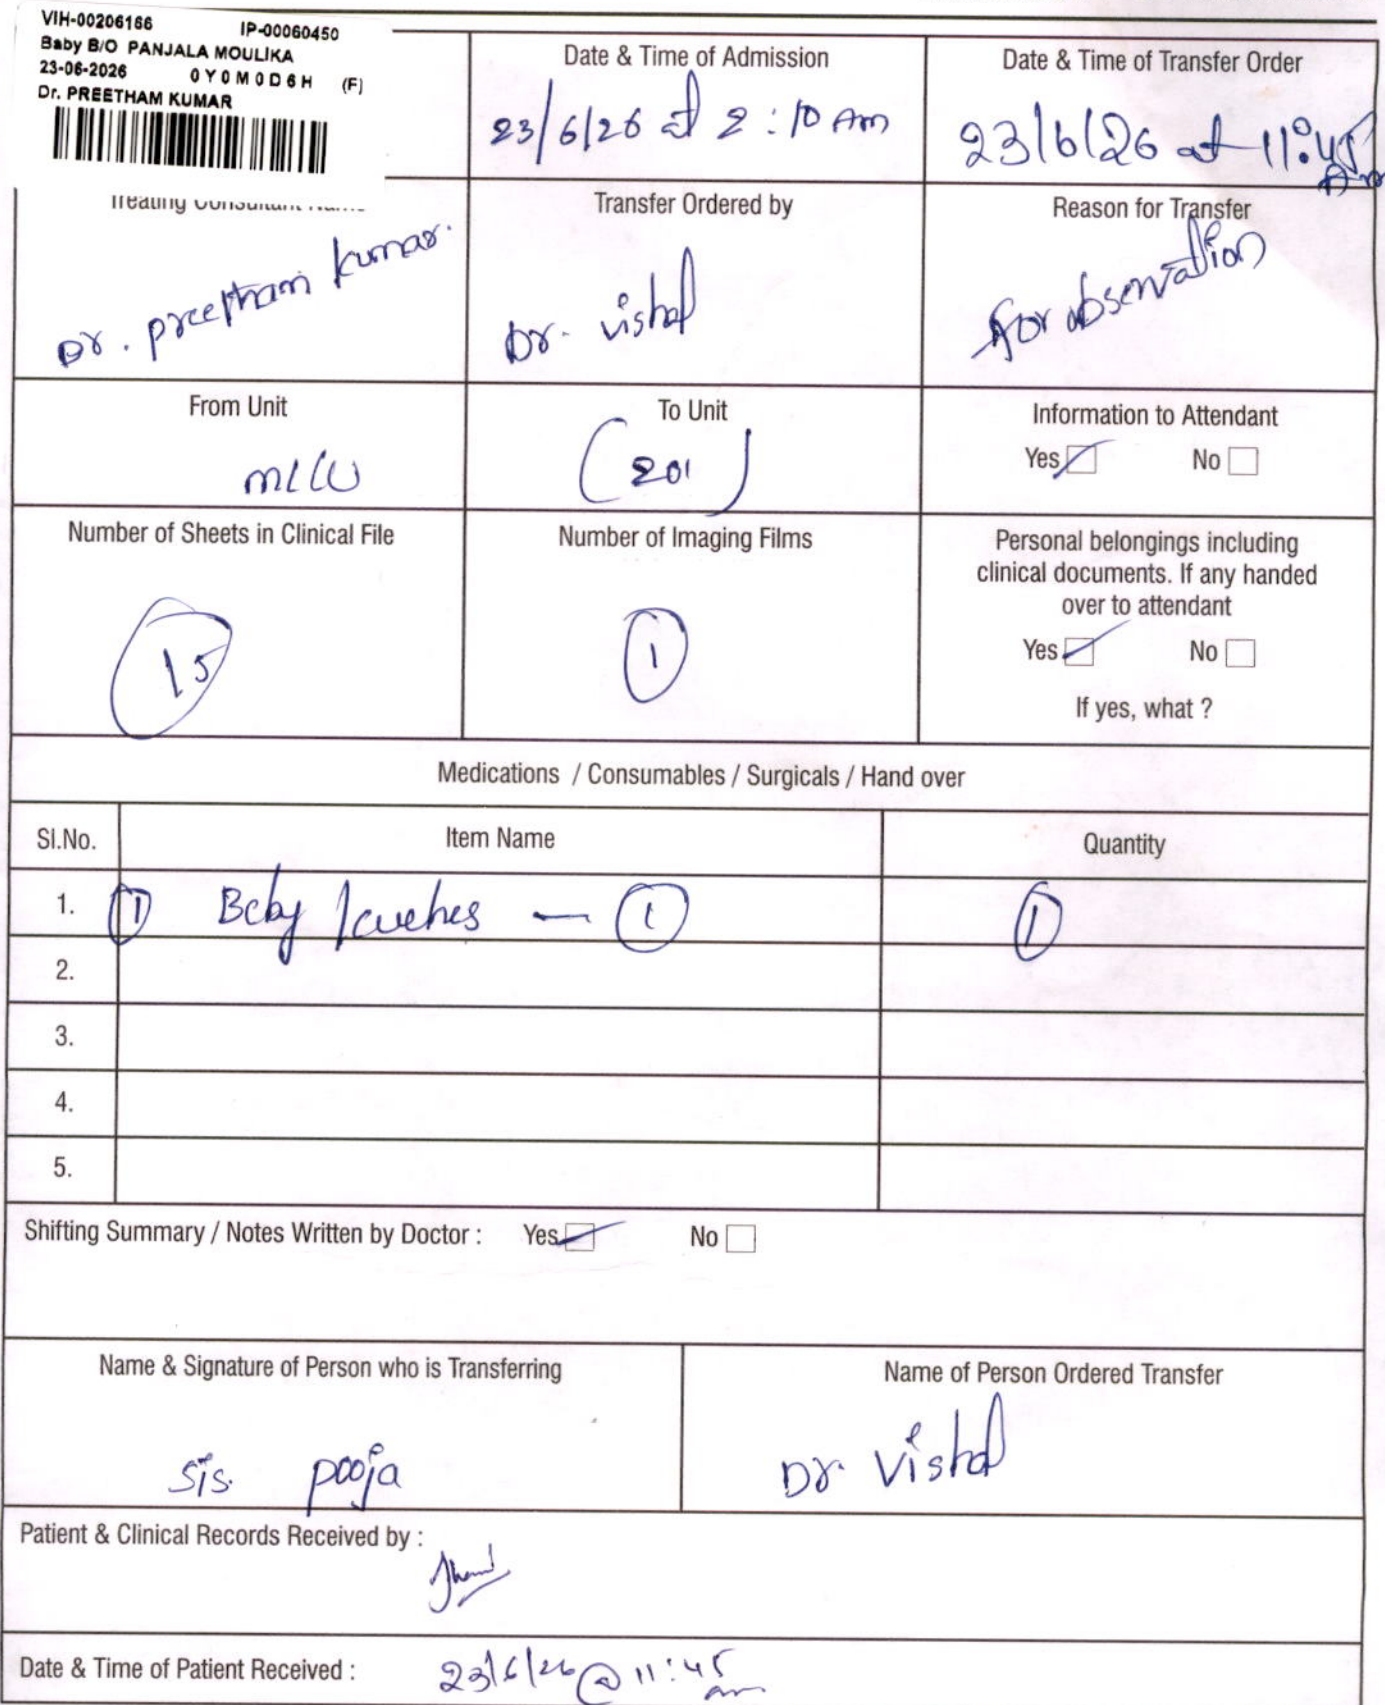 VIH-00206166 IP-00060450
Baby B/O PANJALA MOULIKA
23-06-2026 0Y0M0D6H (F)
Dr. PREETHAM KUMAR
Date & Time of Admission
23/6/26 at 2:10 Am
Date & Time of Transfer Order
23/6/26 at 11:45 Am
Treating Consultant Name
Dr. preetham kumar.
Transfer Ordered by
Dr. vishal
Reason for Transfer
for observation
From Unit
To Unit
(201)
Information to Attendant
Yes No
Number of Sheets in Clinical File
15
Number of Imaging Films
1
Personal belongings including
clinical documents. If any handed
over to attendant
Yes No
If yes, what ?
Medications / Consumables / Surgicals / Hand over
Sl.No. Item Name Quantity
1. 1 Baby — 1 1
2.
3.
4.
5.
Shifting Summary / Notes Written by Doctor : Yes No
Name & Signature of Person who is Transferring
sis. pooja
Name of Person Ordered Transfer
Dr. Vishal
Patient & Clinical Records Received by :
Date & Time of Patient Received : 23/6/26 @ 11:45 am